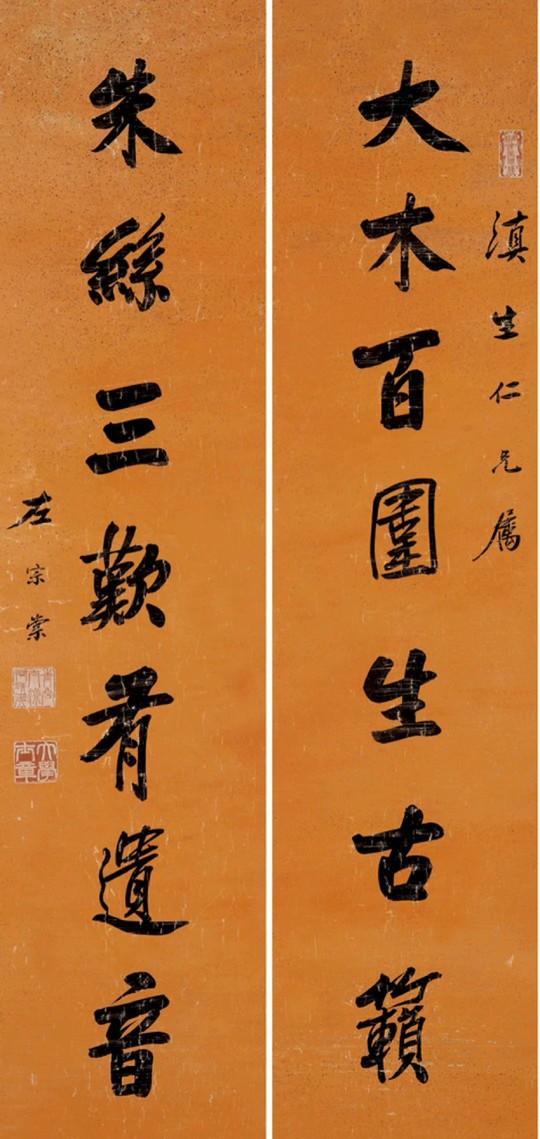 滇生仁兄屬
大木百圍生古籟
朱絲三歎有遺音
左宗棠
大學士章